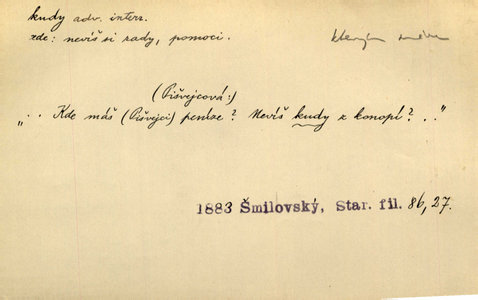 kudy adv. interr.
zde: nevíš si rady, pomoci.
(Pišvejcová:)
„. . Kde máš (Pišvejci) peníze? Nevíš kudy z konopí? . ."
1883 Šmilovský, Star. fil. 86,27.